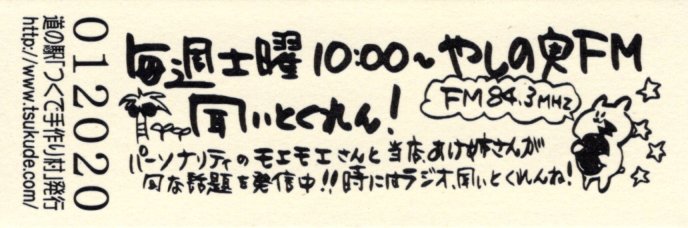 012020
道の駅「つくで手作り村」発行
http://www.tsukude.com/
毎週土曜 10:00～やしの実FM
FM 84.3MHZ
聞いとくれん!
パーソナリティのモエモエさんと当店、あけ姉さんが
旬な話題を発信中!!時にはラジオ、聞いとくれんね!